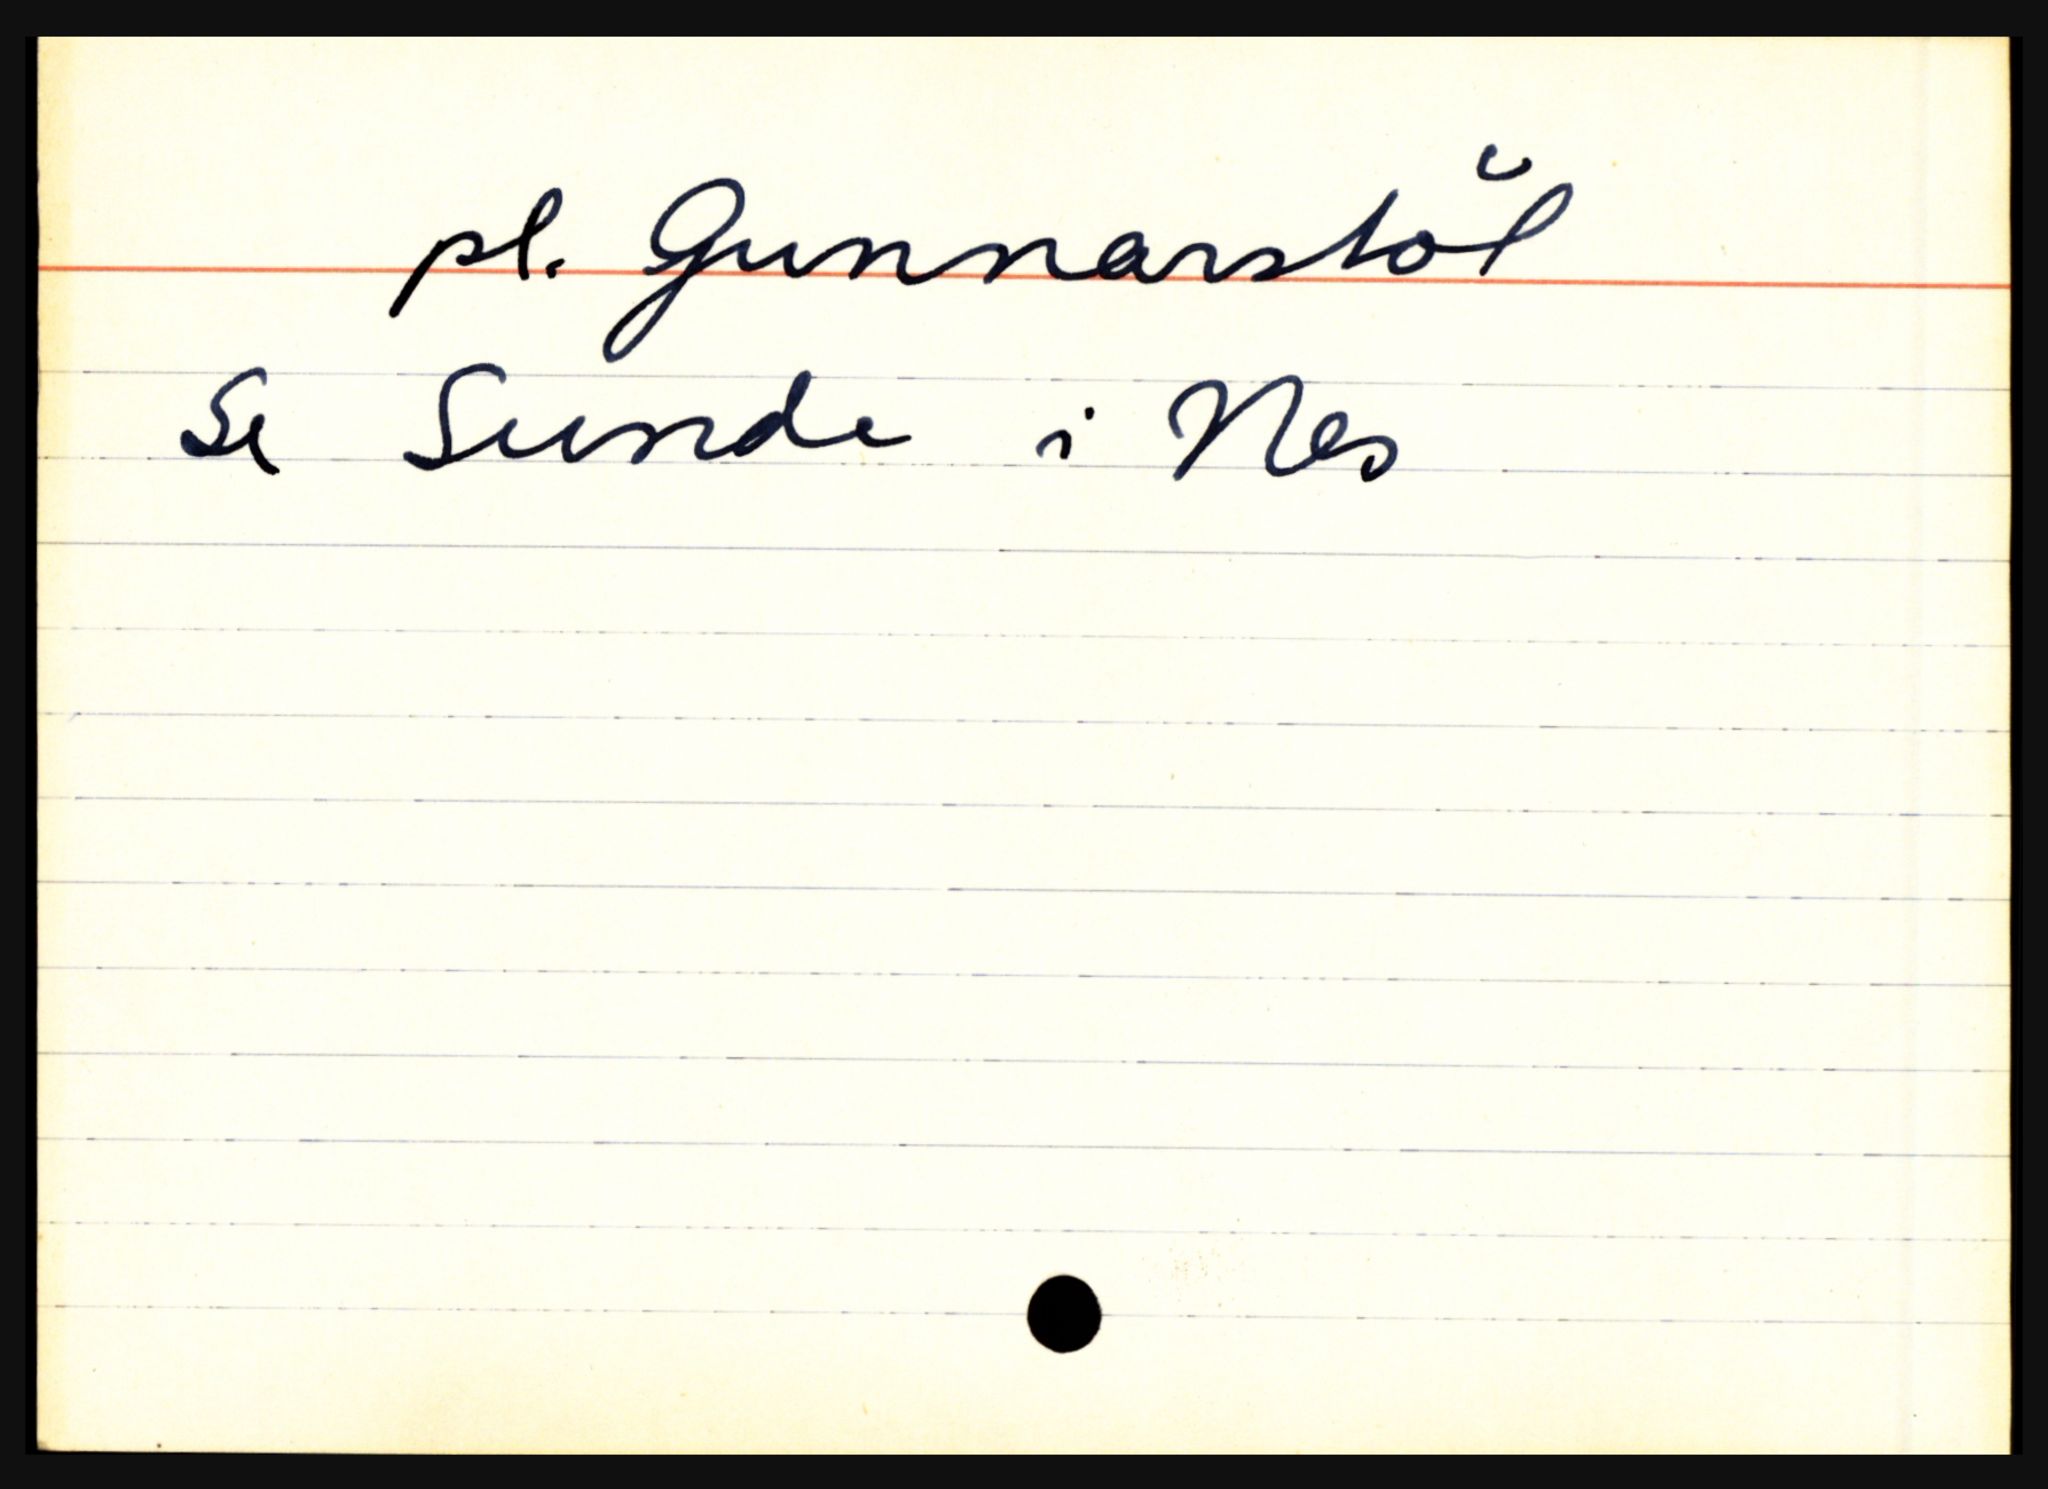 pl. Gunnarstöl
Se Sunde i Nes